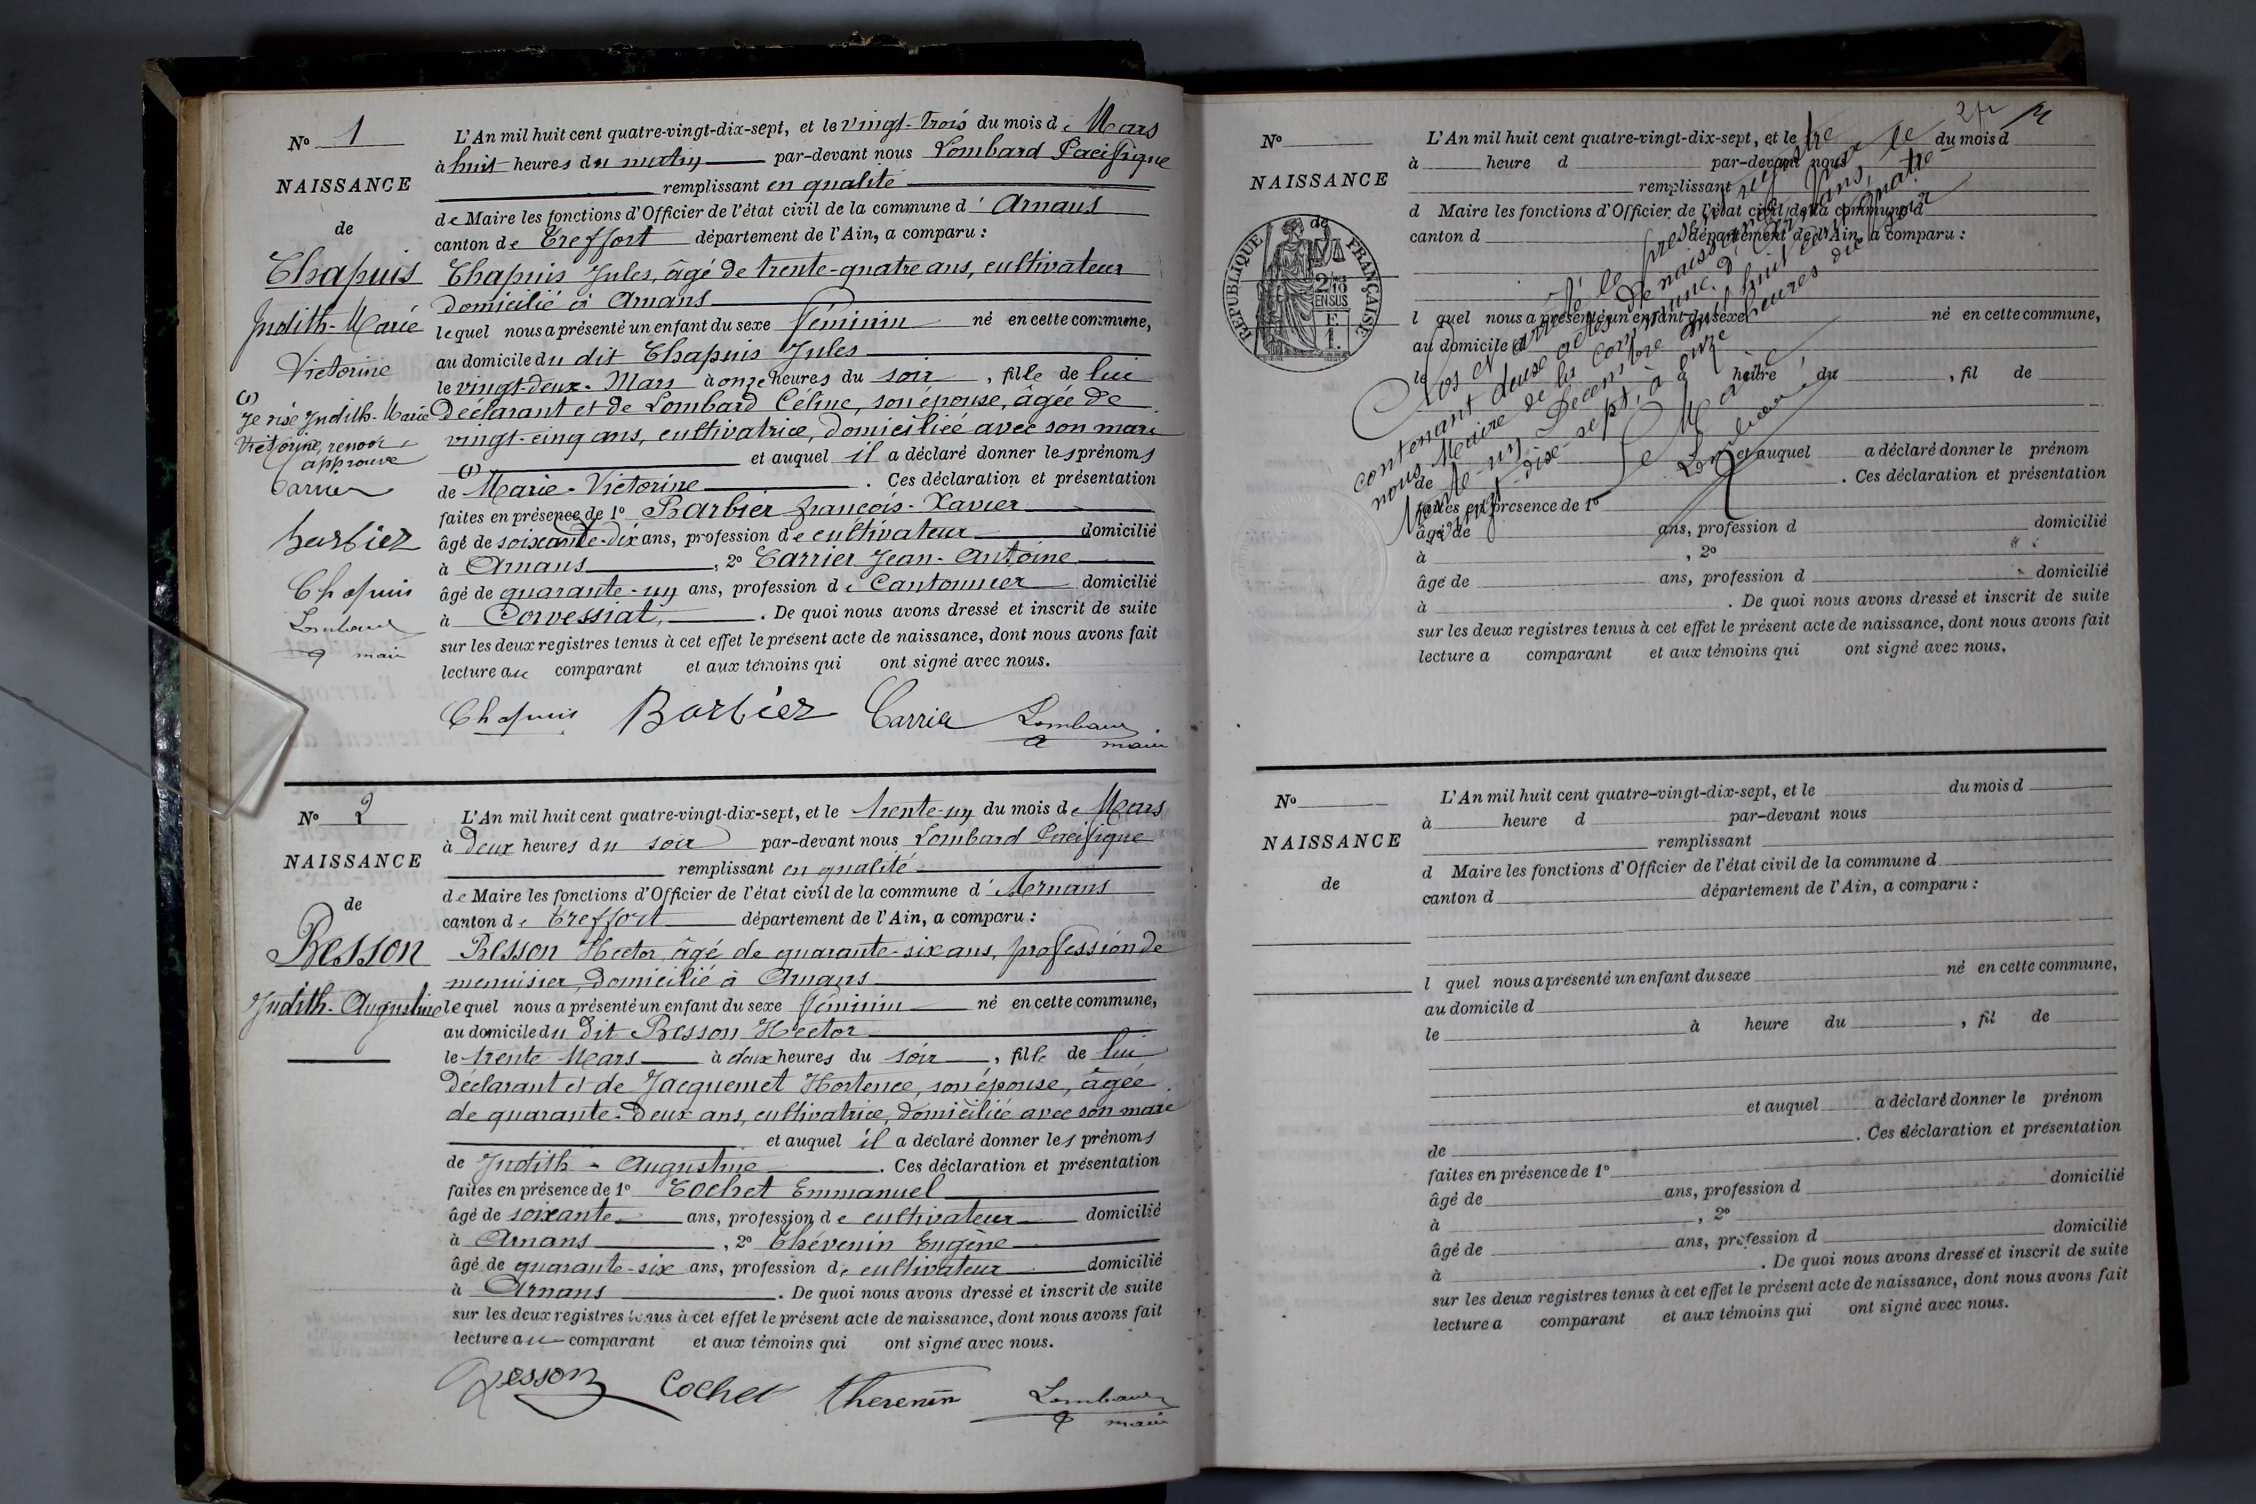 N° 1
NAISSANCE
de
Chapuis
Judith-Marie
Victorine
(1)
Je dis Judith-Marie
Victorine, renvoi
approuvé
Carrier
barbier
Chapuis
Lombard
maire
L'An mil huit cent quatre-vingt-dix-sept, et le vingt-trois du mois de Mars
à huit heures du matin par-devant nous Lombard Pacifique
remplissant en qualité
de Maire les fonctions d'Officier de l'état civil de la commune d'Arnans
canton de Treffort département de l'Ain, a comparu :
Chapuis Jules, âgé de trente-quatre ans, cultivateur
domicilié à Arnans
lequel nous a présenté un enfant du sexe féminin né en cette commune,
au domicile du dit Chapuis Jules
le vingt-deux Mars à onze heures du soir, fille de lui
déclarant et de Lombard Céline, son épouse, âgée de
vingt-cinq ans, cultivatrice, domiciliée avec son mari
et auquel il a déclaré donner les prénoms
de (1) Marie-Victorine. Ces déclaration et présentation
faites en présence de 1° Barbier françois-Xavier
âgé de soixante-dix ans, profession de cultivateur domicilié
à Arnans, 2° Carrier Jean-Antoine
âgé de quarante-un ans, profession de Cantonnier domicilié
à Corvessiat,. De quoi nous avons dressé et inscrit de suite
sur les deux registres tenus à cet effet le présent acte de naissance, dont nous avons fait
lecture au comparant et aux témoins qui ont signé avec nous.
Chapuis Barbier Carrier Lombard
maire
N° 2
NAISSANCE
de
Besson
Judith-Augustine
L'An mil huit cent quatre-vingt-dix-sept, et le trente-un du mois de Mars
à deux heures du soir par-devant nous Lombard Pacifique
remplissant en qualité
de Maire les fonctions d'Officier de l'état civil de la commune d'Arnans
canton de Treffort département de l'Ain, a comparu :
Besson Hector, âgé de quarante-six ans, profession de
menuisier, domicilié à Arnans
lequel nous a présenté un enfant du sexe féminin né en cette commune,
au domicile du dit Besson Hector
le trente Mars à deux heures du soir, fille de lui
déclarant et de Jacquemet Hortence, son épouse, âgée
de quarante-deux ans, cultivatrice, domiciliée avec son mari
et auquel il a déclaré donner les prénoms
de Judith-Augustine. Ces déclaration et présentation
faites en présence de 1° Cochet Emmanuel
âgé de soixante ans, profession de cultivateur domicilié
à Arnans, 2° Thévenin Eugène
âgé de quarante-six ans, profession de cultivateur domicilié
à Arnans. De quoi nous avons dressé et inscrit de suite
sur les deux registres tenus à cet effet le présent acte de naissance, dont nous avons fait
lecture au comparant et aux témoins qui ont signé avec nous.
Besson Cochet thevenin Lombard
maire
N°
NAISSANCE
de
RÉPUBLIQUE FRANÇAISE
2/10
EN SUS
L'An mil huit cent quatre-vingt-dix-sept, et le du mois d
à heure d par-devant nous
remplissant
d Maire les fonctions d'Officier de l'état civil de la commune d
canton d département de l'Ain, a comparu :
l quel nous a présenté un enfant du sexe né en cette commune,
au domicile d
le à heure du, fil de
et auquel a déclaré donner le prénom
de. Ces déclaration et présentation
faites en présence de 1°
âgé de ans, profession d domicilié
à, 2°
âgé de ans, profession d domicilié
à. De quoi nous avons dressé et inscrit de suite
sur les deux registres tenus à cet effet le présent acte de naissance, dont nous avons fait
lecture a comparant et aux témoins qui ont signé avec nous.
Clos et arrêté le présent registre
contenant deux actes de naissance, par le
nous, Maire de la commune d'Arnans,
trente-un Décembre mil huit cent quatre
vingt-dix-sept, à onze heures du soir
Le Maire
Lombard
N°
NAISSANCE
de
L'An mil huit cent quatre-vingt-dix-sept, et le du mois d
à heure d par-devant nous
remplissant
d Maire les fonctions d'Officier de l'état civil de la commune d
canton d département de l'Ain, a comparu :
l quel nous a présenté un enfant du sexe né en cette commune,
au domicile d
le à heure du, fil de
et auquel a déclaré donner le prénom
de. Ces déclaration et présentation
faites en présence de 1°
âgé de ans, profession d domicilié
à, 2°
âgé de ans, profession d domicilié
à. De quoi nous avons dressé et inscrit de suite
sur les deux registres tenus à cet effet le présent acte de naissance, dont nous avons fait
lecture a comparant et aux témoins qui ont signé avec nous.